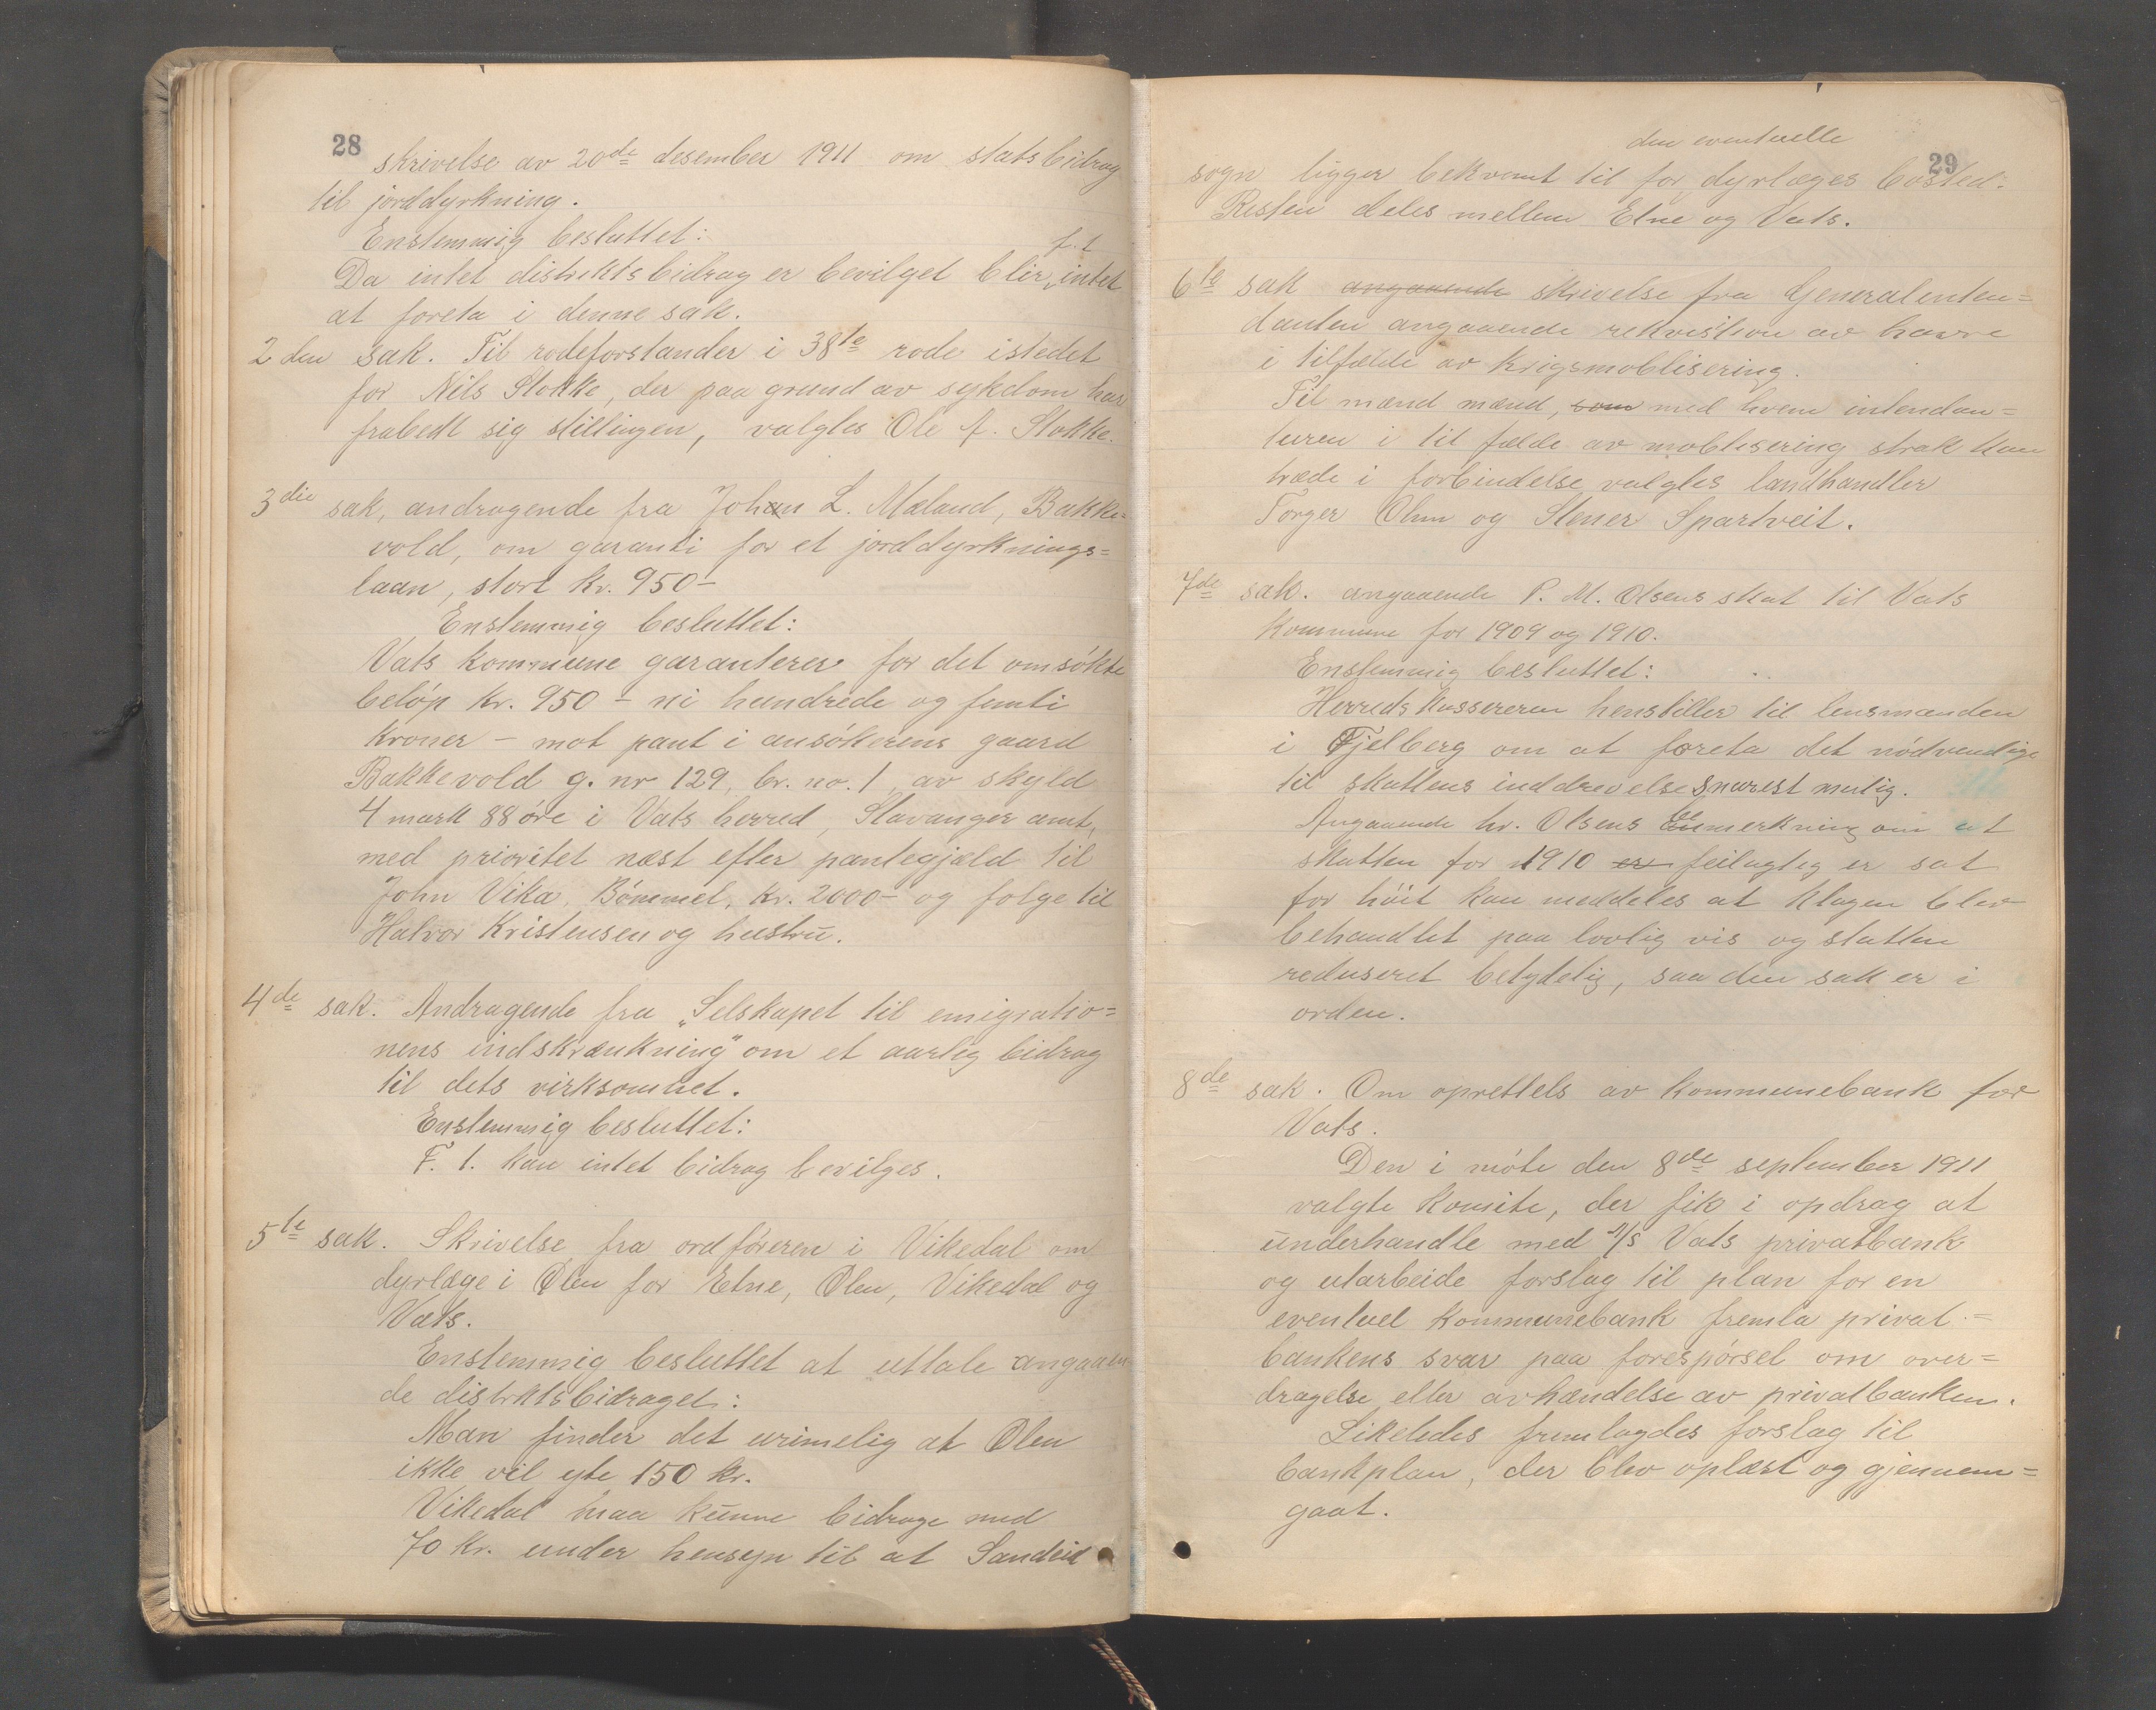 28
skrivelse av 20de desember 1911 om statsbidrag
til jorddyrkning.
Enstemmig besluttet:
f. t
Da intet distriktsbidrag er bevilget blir intet
at foreta i denne sak.
2 den sak. Til rodeforstander i 38te rode istedet
for Nils Stokke, der paa grund av sykdom har
frabedt sig stillingen, valgtes Ole A. Stokke.
3die sak, andragende fra Johan L. Mæland, Bakke=
vold, om garanti for et jorddyrknings=
laan, stort kr. 950-
Enstemmig besluttet:
Vats kommune garanterer for det omsökte
belöp kr. 950 - ni hundrede og femti
kroner - mot pant i ansökerens gaard
Bakkevold g. nr 129, br. no. 1 av skyld
4 mark 88 öre i Vats herred, Stavanger amt,
med prioritet næst efter pantegjæld til
John Vika, Bömmel, kr. 2000- og folge til
Halvor Kristensen og hustru.
4de sak. Andragende fra „Selskapet til emigratio=
nens indskrænkning" om et aarlig bidrag
til dets virksomhet.
Enstemmig besluttet:
F. t. kan intet bidrag bevilges.
5te sak. Skrivelse fra ordföreren i Vikedal om
dyrlæge i Ølen for Etne, Ølen, Vikedal og
Vats.
Enstemmig besluttet at uttale angaaen
de distriktsbidraget:
Man finder det urimelig at Ølen
ikke vil yte 150 kr.
Vikedal maa kunne bidrage med
70 kr. under hensyn til at Sandeid
29
den eventuelle
sogn ligger bekvemt til for dyrlæges bosted.
Resten deles mellem Etne og Vats.
6te sak angaaende skrivelse fra Generalinten=
danten angaaende rekvisition av havre
i tilfælde av krigsmoblisering.
Til mænd mænd, som med hvem intendan=
turen i til fælde av moblisering strak kan
træde i forbindelse valgtes landhandler
Torger Ølmn og Stener Spartveit.
7de sak. angaaende P. M. Olsens skat til Vats
kommune for 1909 og 1910.
Enstemmig besluttet:
Herredskassereren henstiller til lensmanden
i Fjelberg om at foreta det nödvendige
til skattens inddrevelse snarest mulig.
Angaaende hr. Olsens bemerkning om at
skatten for 1910 er feilagtig er sat
for höit kan meddeles at klagen blev
behandlet paa lovlig vis og skatten
reduseret betydelig, saa den sak er i
orden.
8de sak. Om oprettels av kommunebank for
Vats.
Den i möte den 8de september 1911
valgte komite, der fik i opdrag at
underhandle med A/S Vats privatbank
og utarbeide forslag til plan for en
eventuel kommunebank fremla privat=
bankens svar paa forespörsel om over=
dragelse eller avhændelse av privatbanken.
Likeledes fremlagdes forslag til
bankplan, der blev oplæst og gjennem=
gaat.